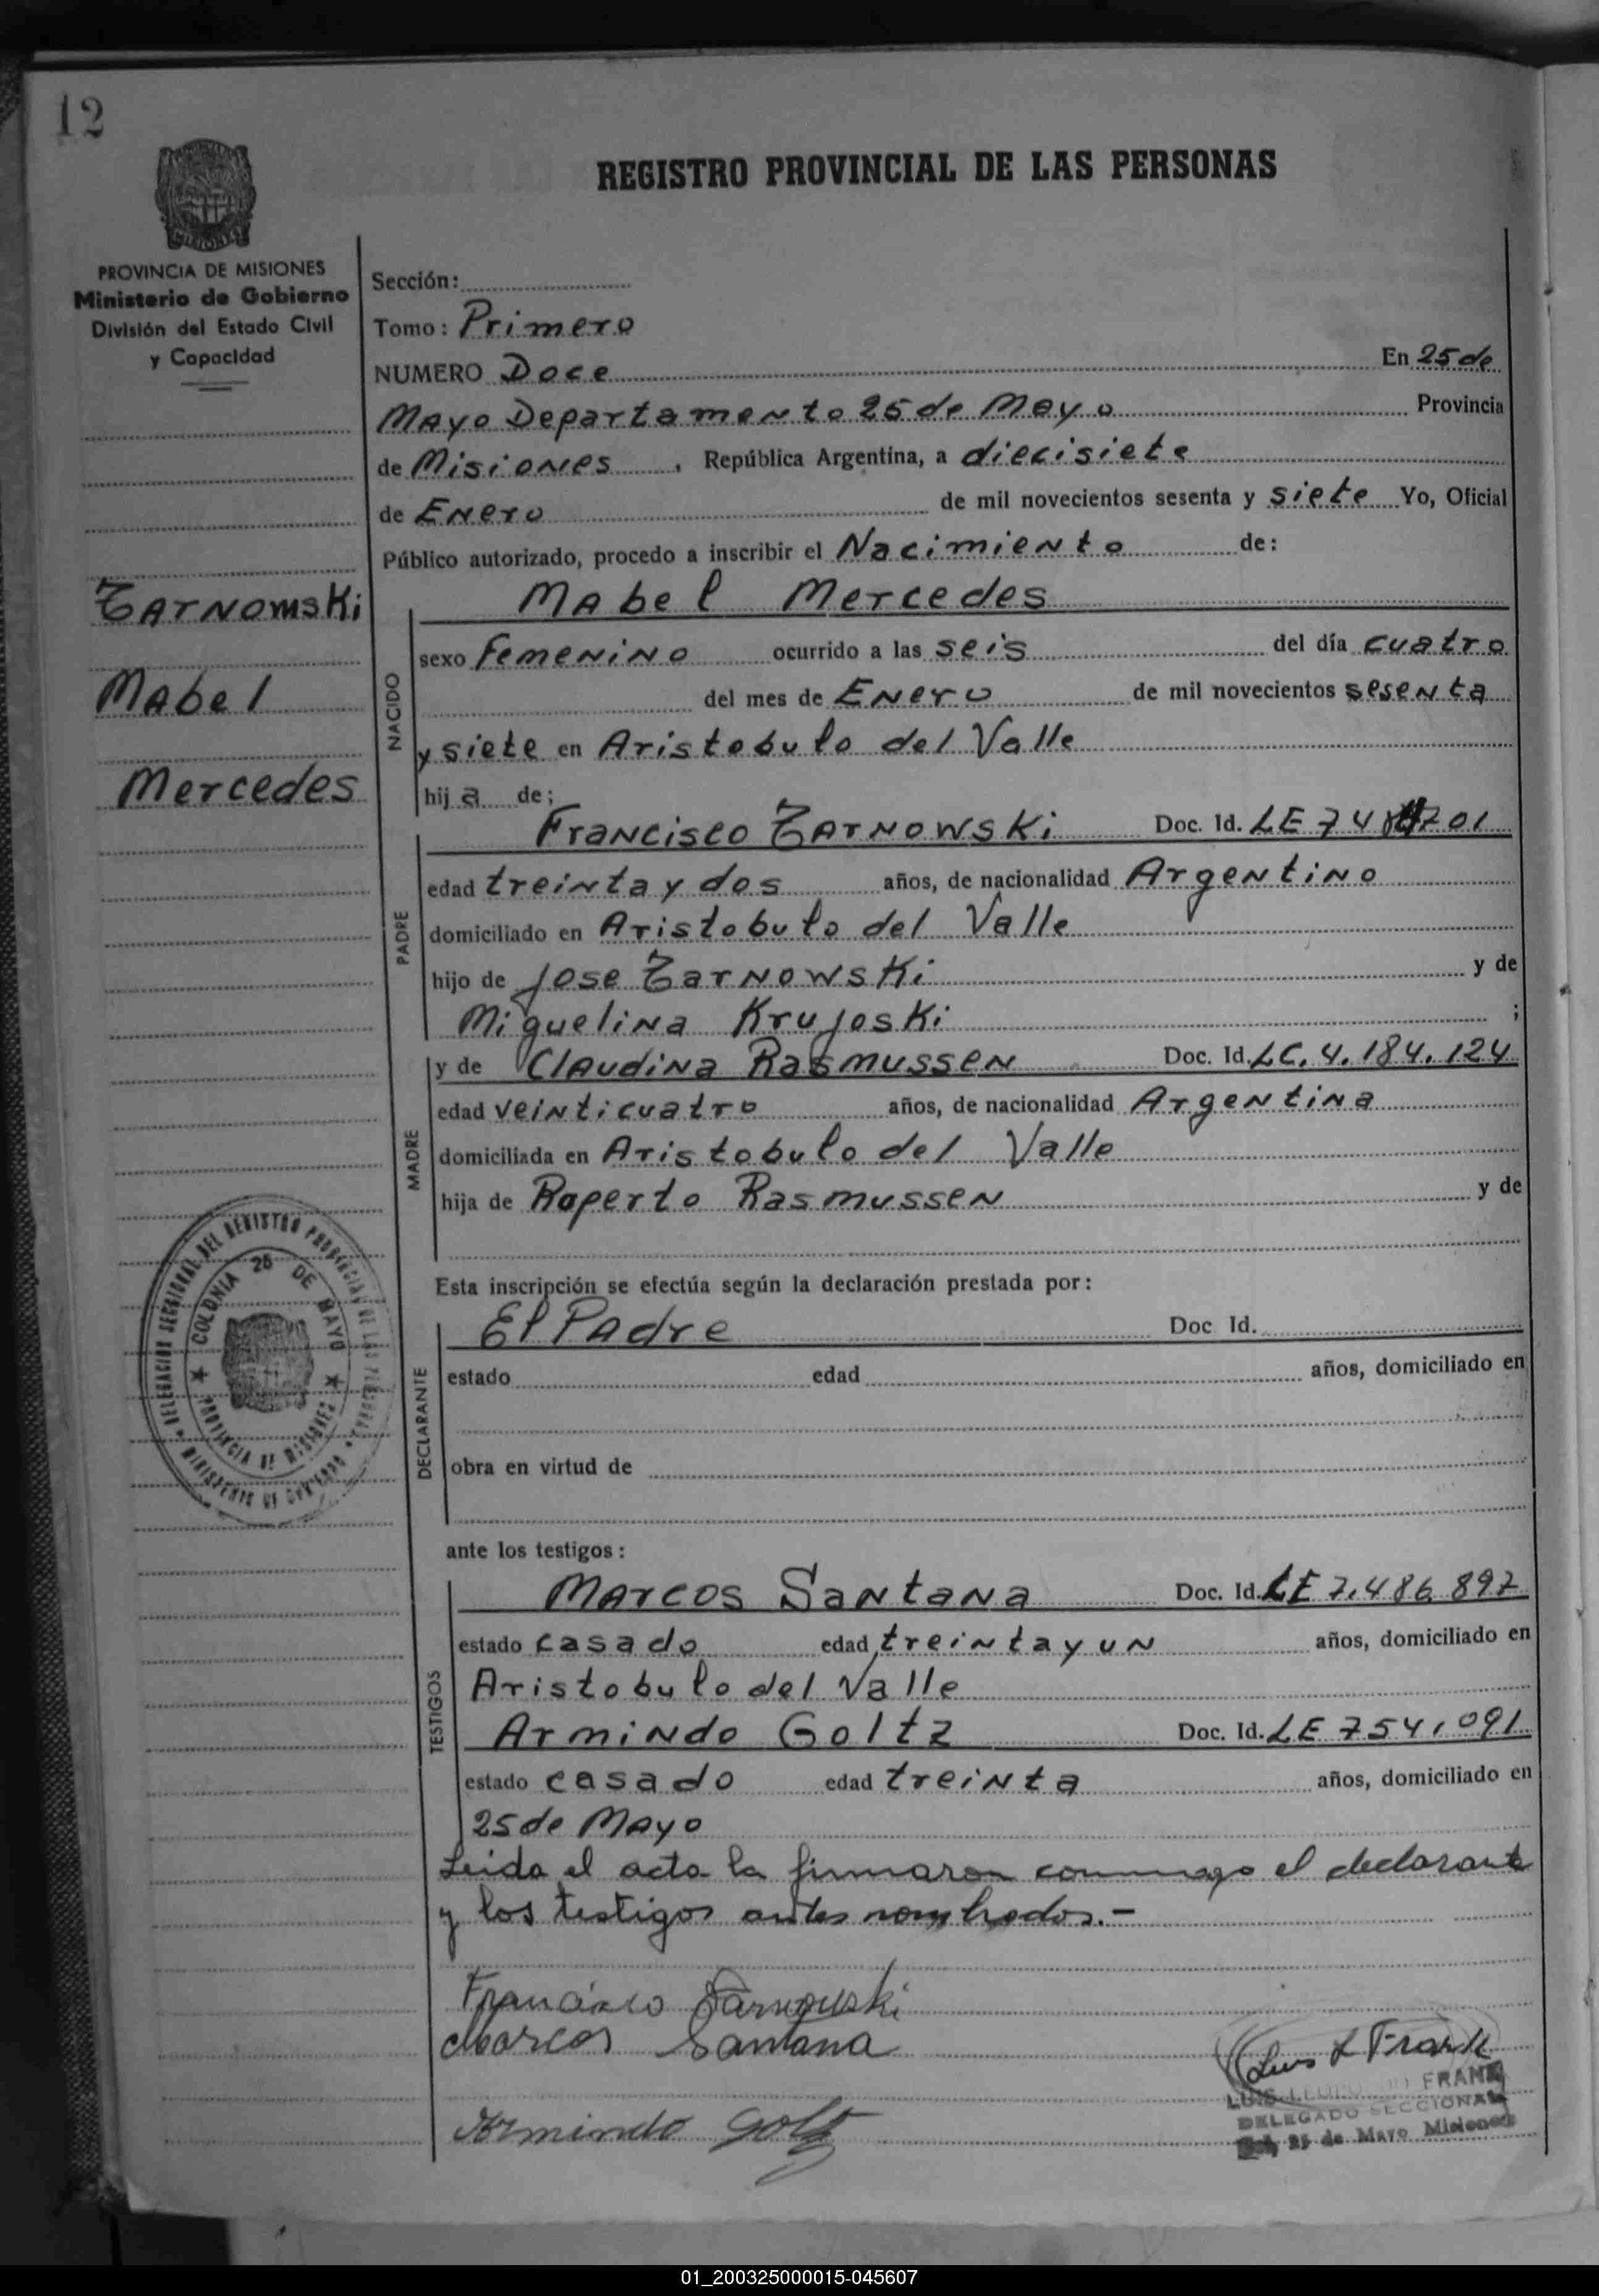 12
REGISTRO PROVINCIAL DE LAS PERSONAS
PROVINCIA DE MISIONES
Ministerio de Gobierno
División del Estado Civil
y Capacidad
Tarnomski
Mabel
Mercedes
Sección:
Tomo: Primero
NUMERO Doce En 25 de
Mayo Departamento 25 de Mayo Provincia
de Misiones, República Argentina, a diecisiete
de Enero de mil novecientos sesenta y siete Yo, Oficial
Público autorizado, procedo a inscribir el Nacimiento de:
Mabel Mercedes
NACIDO
sexo femenino ocurrido a las seis del día cuatro
del mes de Enero de mil novecientos sesenta
y siete en Aristobulo del Valle
hija de;
Francisco Tarnowski Doc. Id. LE 748 701
PADRE
edad treinta y dos años, de nacionalidad Argentino
domiciliado en Aristobulo del Valle
hijo de Jose Tarnowski y de
Miguelina Krujoski ;
y de Claudina Rasmussen Doc. Id. LC. 4.184.124
MADRE
edad veinticuatro años, de nacionalidad Argentina
domiciliada en Aristobulo del Valle
hija de Roperto Rasmussen y de
Esta inscripción se efectúa según la declaración prestada por:
El Padre Doc Id.
DECLARANTE
estado edad años, domiciliado en
obra en virtud de
ante los testigos:
Marcos Santana Doc. Id. LE 7.486.897
TESTIGOS
estado casado edad treinta y un años, domiciliado en
Aristobulo del Valle
Armindo Goltz Doc. Id. LE 754,091
estado casado edad treinta años, domiciliado en
25 de Mayo
Leida el acta la firmaron conmigo el declarante
y los testigos antes nombrados.-
Francisco Tarnowski
Marcos Santana
Armindo Goltz
Luis L Frank
LUIS LEOPOLDO FRANK
DELEGADO SECCIONAL
Col. 25 de Mayo Misiones
DELEGACION SECCIONAL DEL REGISTRO PROVINCIAL DE LAS PERSONAS
MINISTERIO DE GOBIERNO
COLONIA 25 DE MAYO
PROVINCIA DE MISIONES
01_200325000015-045607